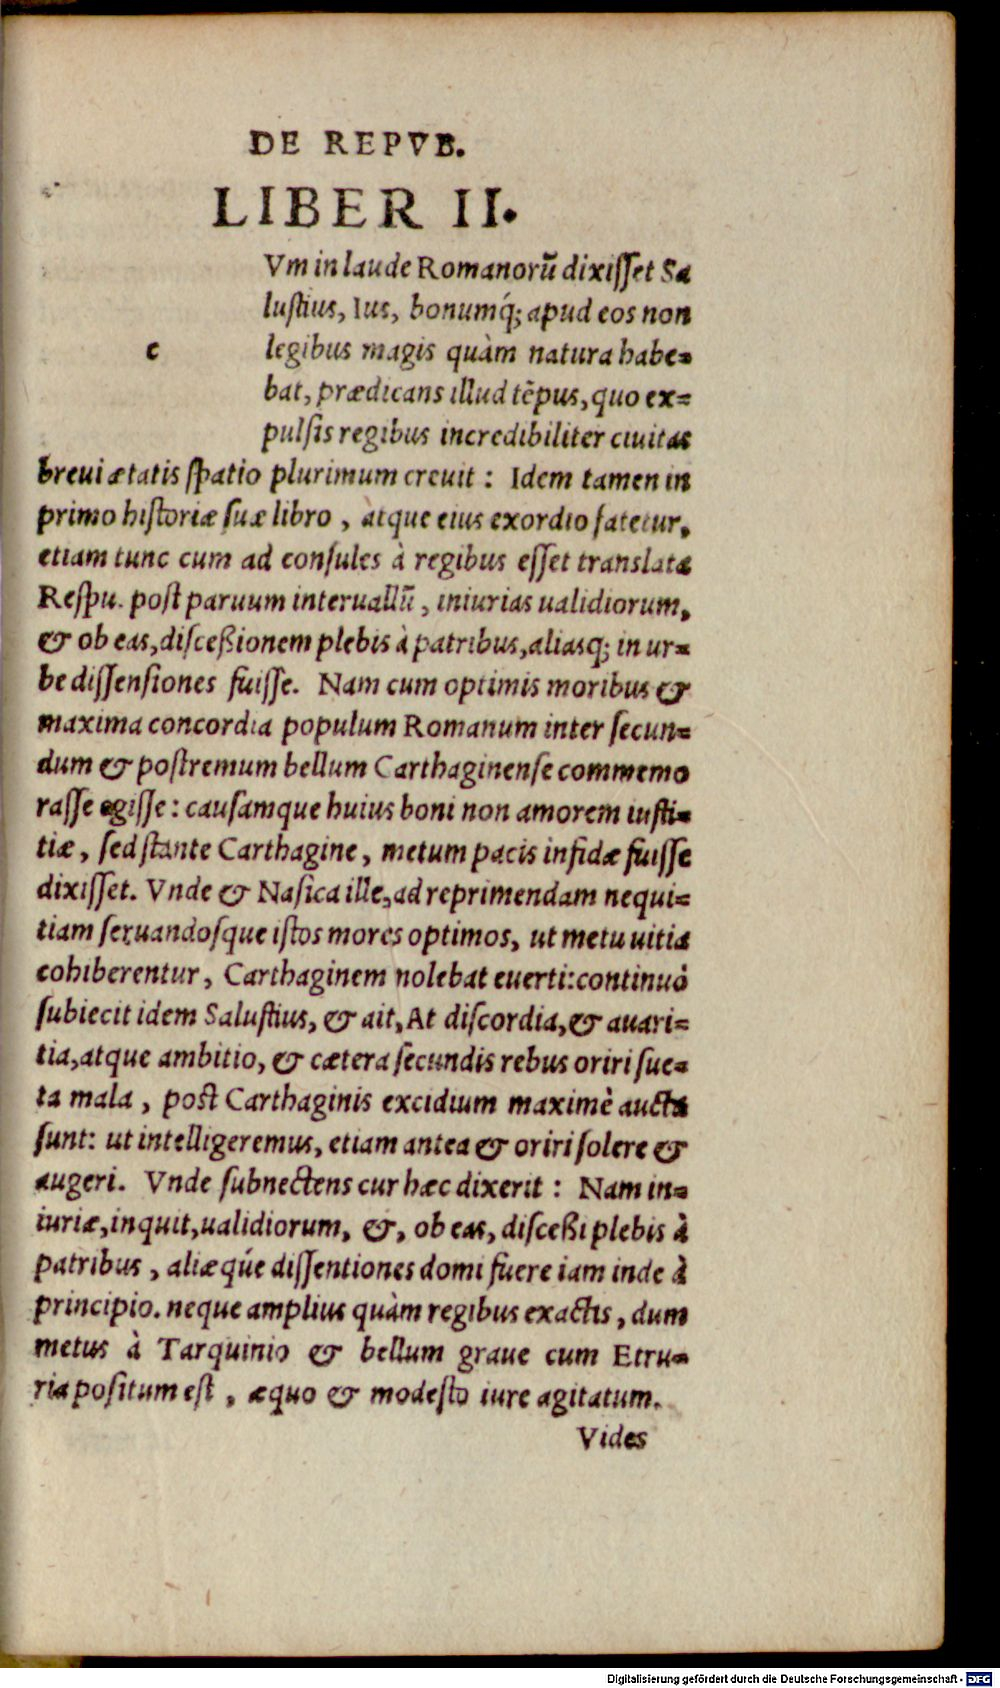 DE REPVB.
LIBER II.
Vm in laude Romanorū dixisset Sa
lustius, Ius, bonumq́; apud eos non
c legibus magis quàm natura habe=
bat, prædicans illud tēpus, quo ex=
pulsis regibus incredibiliter ciuitas
breui ætatis spatio plurimum creuit : Idem tamen in
primo historiæ suæ libro , atque eius exordio fatetur,
etiam tunc cum ad consules à regibus esset translata
Respu. post paruum interuallū , iniurias ualidiorum,
& ob eas, disceßionem plebis à patribus, aliasq; in ur=
be dissensiones fuisse. Nam cum optimis moribus &
maxima concordia populum Romanum inter secun=
dum & postremum bellum Carthaginense commemo
rasse egisse : causamque huius boni non amorem iusti=
tiæ , sed stante Carthagine , metum pacis infidæ fuisse
dixisset. Vnde & Nasica ille, ad reprimendam nequi=
tiam seruandosque istos mores optimos, ut metu uitia
cohiberentur , Carthaginem nolebat euerti: continuò
subiecit idem Salustius, & ait, At discordia, & auari=
tia, atque ambitio, & cætera secundis rebus oriri sue=
ta mala , post Carthaginis excidium maximè aucta
sunt: ut intelligeremus, etiam antea & oriri solere &
augeri. Vnde subnectens cur hæc dixerit : Nam in=
iuriæ, inquit, ualidiorum, &, ob eas, disceßi plebis à
patribus , aliæq́ue dissentiones domi fuere iam inde à
principio. neque amplius quàm regibus exactis , dum
metus à Tarquinio & bellum graue cum Etru=
ria positum est , æquo & modesto iure agitatum.
Vides
Digitalisierung gefördert durch die Deutsche Forschungsgemeinschaft - DFG